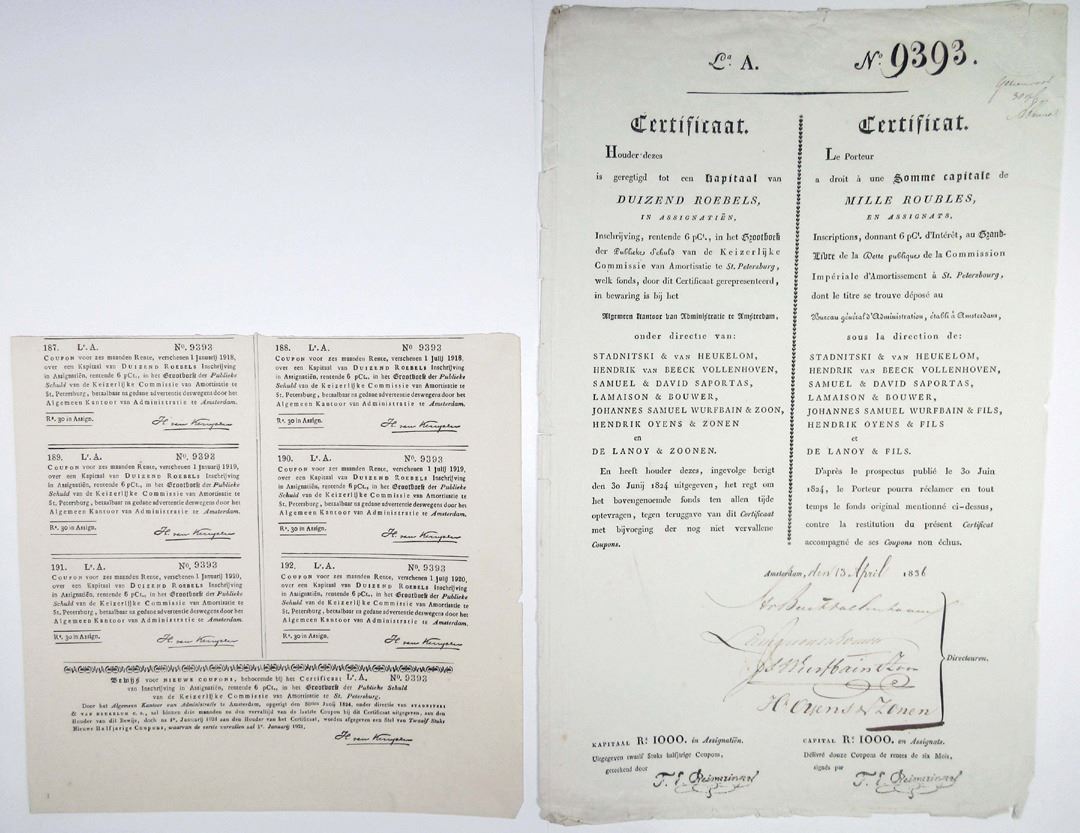 187. Lr. A. No. 9393
COUPON voor zes maanden Rente, verschenen 1 Januarij 1918,
over een Kapitaal van DUIZEND ROEBELS Inschrijving
in Assignatiën, rentende 6 pCt., in het Grootboek der Publieke
Schuld van de Keizerlijke Commissie van Amortisatie te
St. Petersburg, betaalbaar na gedane advertentie deswegens door het
Algemeen Kantoor van Administratie te Amsterdam.
Rs. 30 in Assign.
H. van Kempen
188. Lr. A. No. 9393
COUPON voor zes maanden Rente, verschenen 1 Julij 1918,
over een Kapitaal van DUIZEND ROEBELS Inschrijving
in Assignatiën, rentende 6 pCt., in het Grootboek der Publieke
Schuld van de Keizerlijke Commissie van Amortisatie te
St. Petersburg, betaalbaar na gedane advertentie deswegens door het
Algemeen Kantoor van Administratie te Amsterdam.
Rs. 30 in Assign.
H. van Kempen
189. Lr. A. No. 9393
COUPON voor zes maanden Rente, verschenen 1 Januarij 1919,
over een Kapitaal van DUIZEND ROEBELS Inschrijving
in Assignatiën, rentende 6 pCt., in het Grootboek der Publieke
Schuld van de Keizerlijke Commissie van Amortisatie te
St. Petersburg, betaalbaar na gedane advertentie deswegens door het
Algemeen Kantoor van Administratie te Amsterdam.
Rs. 30 in Assign.
H. van Kempen
190. Lr. A. No. 9393
COUPON voor zes maanden Rente, verschenen 1 Julij 1919,
over een Kapitaal van DUIZEND ROEBELS Inschrijving
in Assignatiën, rentende 6 pCt., in het Grootboek der Publieke
Schuld van de Keizerlijke Commissie van Amortisatie te
St. Petersburg, betaalbaar na gedane advertentie deswegens door het
Algemeen Kantoor van Administratie te Amsterdam.
Rs. 30 in Assign.
H. van Kempen
191. Lr. A. No. 9393
COUPON voor zes maanden Rente, verschenen 1 Januarij 1920,
over een Kapitaal van DUIZEND ROEBELS Inschrijving
in Assignatiën, rentende 6 pCt., in het Grootboek der Publieke
Schuld van de Keizerlijke Commissie van Amortisatie te
St. Petersburg, betaalbaar na gedane advertentie deswegens door het
Algemeen Kantoor van Administratie te Amsterdam.
Rs. 30 in Assign.
H. van Kempen
192. Lr. A. No. 9393
COUPON voor zes maanden Rente, verschenen 1 Julij 1920,
over een Kapitaal van DUIZEND ROEBELS Inschrijving
in Assignatiën, rentende 6 pCt., in het Grootboek der Publieke
Schuld van de Keizerlijke Commissie van Amortisatie te
St. Petersburg, betaalbaar na gedane advertentie deswegens door het
Algemeen Kantoor van Administratie te Amsterdam.
Rs. 30 in Assign.
H. van Kempen
Bewijs voor NIEUWE COUPONS, behoorende bij het Certificaat Lr. A. No. 9393
van Inschrijving in Assignatiën, rentende 6 pCt., in het Grootboek der Publieke Schuld
van de Keizerlijke Commissie van Amortisatie te St. Petersburg.
Door het Algemeen Kantoor van Administratie te Amsterdam, opgerigt den 30sten Junij 1824, onder directie van STADNITSKI
& VAN HEUKELOM c. s., zal binnen zes maanden na den vervaltijd van de laatste Coupon bij dit Certificaat uitgegeven, aan den
Houder van dit Bewijs, doch na 1o. Januarij 1921 aan den Houder van het Certificaat, worden afgegeven een Stel van Twaalf Stuks
Nieuwe Halfjarige Coupons, waarvan de eerste vervallen zal 1o. Januarij 1921.
H. van Kempen
La. A. No. 9393.
Certificaat.
Houder dezes
is geregtigd tot een Kapitaal van
DUIZEND ROEBELS,
IN ASSIGNATIËN,
Inschrijving, rentende 6 pCt., in het Grootboek
der Publieke Schuld van de Keizerlijke
Commissie van Amortisatie te St. Petersburg,
welk fonds, door dit Certificaat gerepresenteerd,
in bewaring is bij het
Algemeen Kantoor van Administratie te Amsterdam,
onder directie van:
STADNITSKI & VAN HEUKELOM,
HENDRIK VAN BEECK VOLLENHOVEN,
SAMUEL & DAVID SAPORTAS,
LAMAISON & BOUWER,
JOHANNES SAMUEL WURFBAIN & ZOON,
HENDRIK OYENS & ZONEN
en
DE LANOY & ZOONEN.
En heeft houder dezes, ingevolge berigt
den 30 Junij 1824 uitgegeven, het regt om
het bovengenoemde fonds ten allen tijde
optevragen, tegen teruggave van dit Certificaat
met bijvoeging der nog niet vervallene
Coupons.
Certificat.
Le Porteur
a droit à une Somme capitale de
MILLE ROUBLES,
EN ASSIGNATS,
Inscriptions, donnant 6 pCt. d'Intérêt, au Grand-
Livre de la Dette publique de la Commission
Impériale d'Amortissement à St. Petersbourg,
dont le titre se trouve déposé au
Bureau général d'Administration, établi à Amsterdam,
sous la direction de:
STADNITSKI & VAN HEUKELOM,
HENDRIK VAN BEECK VOLLENHOVEN,
SAMUEL & DAVID SAPORTAS,
LAMAISON & BOUWER,
JOHANNES SAMUEL WURFBAIN & FILS,
HENDRIK OYENS & FILS
et
DE LANOY & FILS.
D'après le prospectus publié le 30 Juin
1824, le Porteur pourra réclamer en tout
temps le fonds original mentionné ci-dessus,
contre la restitution du présent Certificat
accompagné de ses Coupons non échus.
Amsterdam, den 13 April 1836
J S Wurfbain & Zoon
H Oyens & Zonen
Directeuren.
KAPITAAL Rs. 1000. in Assignatiën.
Uitgegeven twaalf Stuks halfjarige Coupons,
geteekend door
CAPITAL Rs. 1000. en Assignats.
Délivré douze Coupons de rentes de six Mois,
signés par